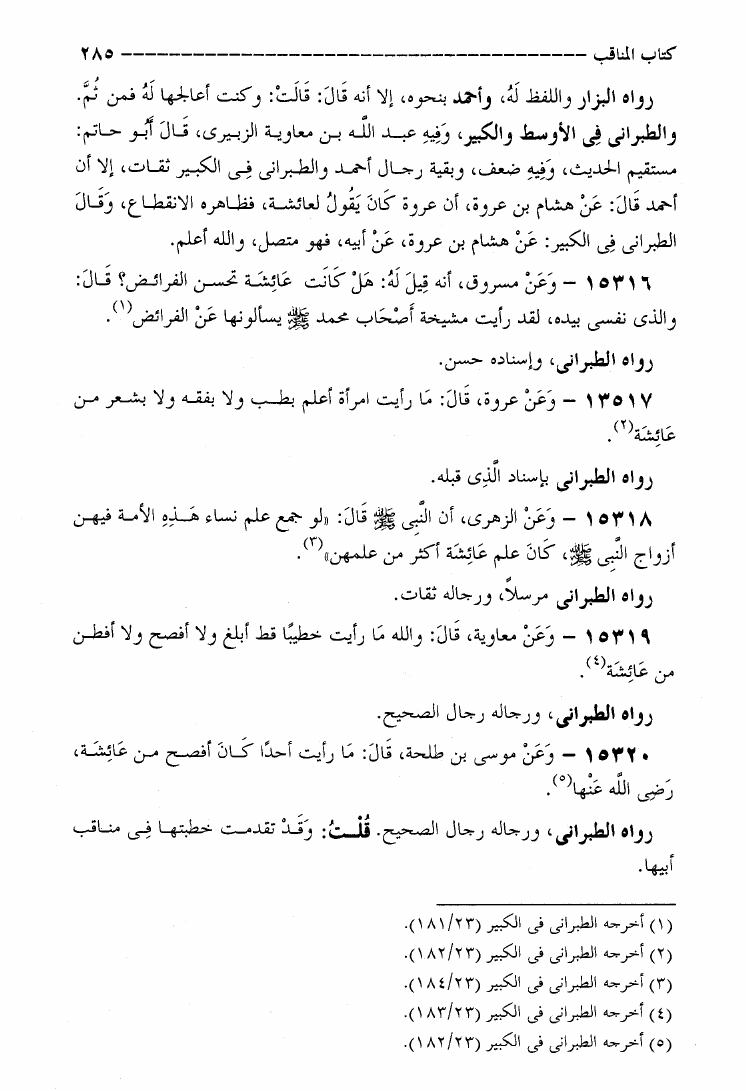 كتاب المناقب ------------------------------------------ ٢٨٥
رواه البزار واللفظ لَهُ، وأحمد بنحوه، إلا أنه قَالَ: قَالَتْ: وكنت أعالجها لَهُ فمن ثُمَّ.
والطبرانى فِى الأوسط والكبير، وَفِيهِ عبد اللَّه بن معاوية الزبيرى، قَالَ أَبُو حاتم:
مستقيم الحديث، وَفِيهِ ضعف، وبقية رجال أحمد والطبرانى فِى الكبير ثقات، إلا أن
أحمد قَالَ: عَنْ هشام بن عروة، أن عروة كَانَ يَقُولُ لعائشة، فظاهره الانقطاع، وَقَالَ
الطبرانى فِى الكبير: عَنْ هشام بن عروة، عَنْ أبيه، فهو متصل، والله أعلم.
١٥٣١٦ – وَعَنْ مسروق، أنه قِيلَ لَهُ: هَلْ كَانَت عَائِشَة تحسن الفرائض؟ قَالَ:
والذى نفسى بيده، لقد رأيت مشيخة أَصْحَاب محمد ﷺ يسألونها عَنْ الفرائض(١).
رواه الطبرانى، وإسناده حسن.
١٣٥١٧ – وَعَنْ عروة، قَالَ: مَا رأيت امرأة أعلم بطب ولا بفقه ولا بشعر من
عَائِشَة(٢).
رواه الطبرانى بإسناد الَّذِى قبله.
١٥٣١٨ – وَعَنْ الزهرى، أن النَّبِى ﷺ قَالَ: «لو جمع علم نساء هَذِهِ الأمة فيهن
أزواج النَّبِى ﷺ، كَانَ علم عَائِشَة أكثر من علمهن»(٣).
رواه الطبرانى مرسلاً، ورجاله ثقات.
١٥٣١٩ – وَعَنْ معاوية، قَالَ: والله مَا رأيت خطيبًا قط أبلغ ولا أفصح ولا أفطن
من عَائِشَة(٤).
رواه الطبرانى، ورجاله رجال الصحيح.
١٥٣٢٠ – وَعَنْ موسى بن طلحة، قَالَ: مَا رأيت أحدًا كَانَ أفصح من عَائِشَة،
رَضِى اللَّه عَنْها(٥).
رواه الطبرانى، ورجاله رجال الصحيح. قُلْتُ: وَقَدْ تقدمت خطبتها فِى مناقب
أبيها.
(١) أخرجه الطبرانى فى الكبير (١٨١/٢٣).
(٢) أخرجه الطبرانى فى الكبير (١٨٢/٢٣).
(٣) أخرجه الطبرانى فى الكبير (١٨٤/٢٣).
(٤) أخرجه الطبرانى فى الكبير (١٨٣/٢٣).
(٥) أخرجه الطبرانى فى الكبير (١٨٢/٢٣).